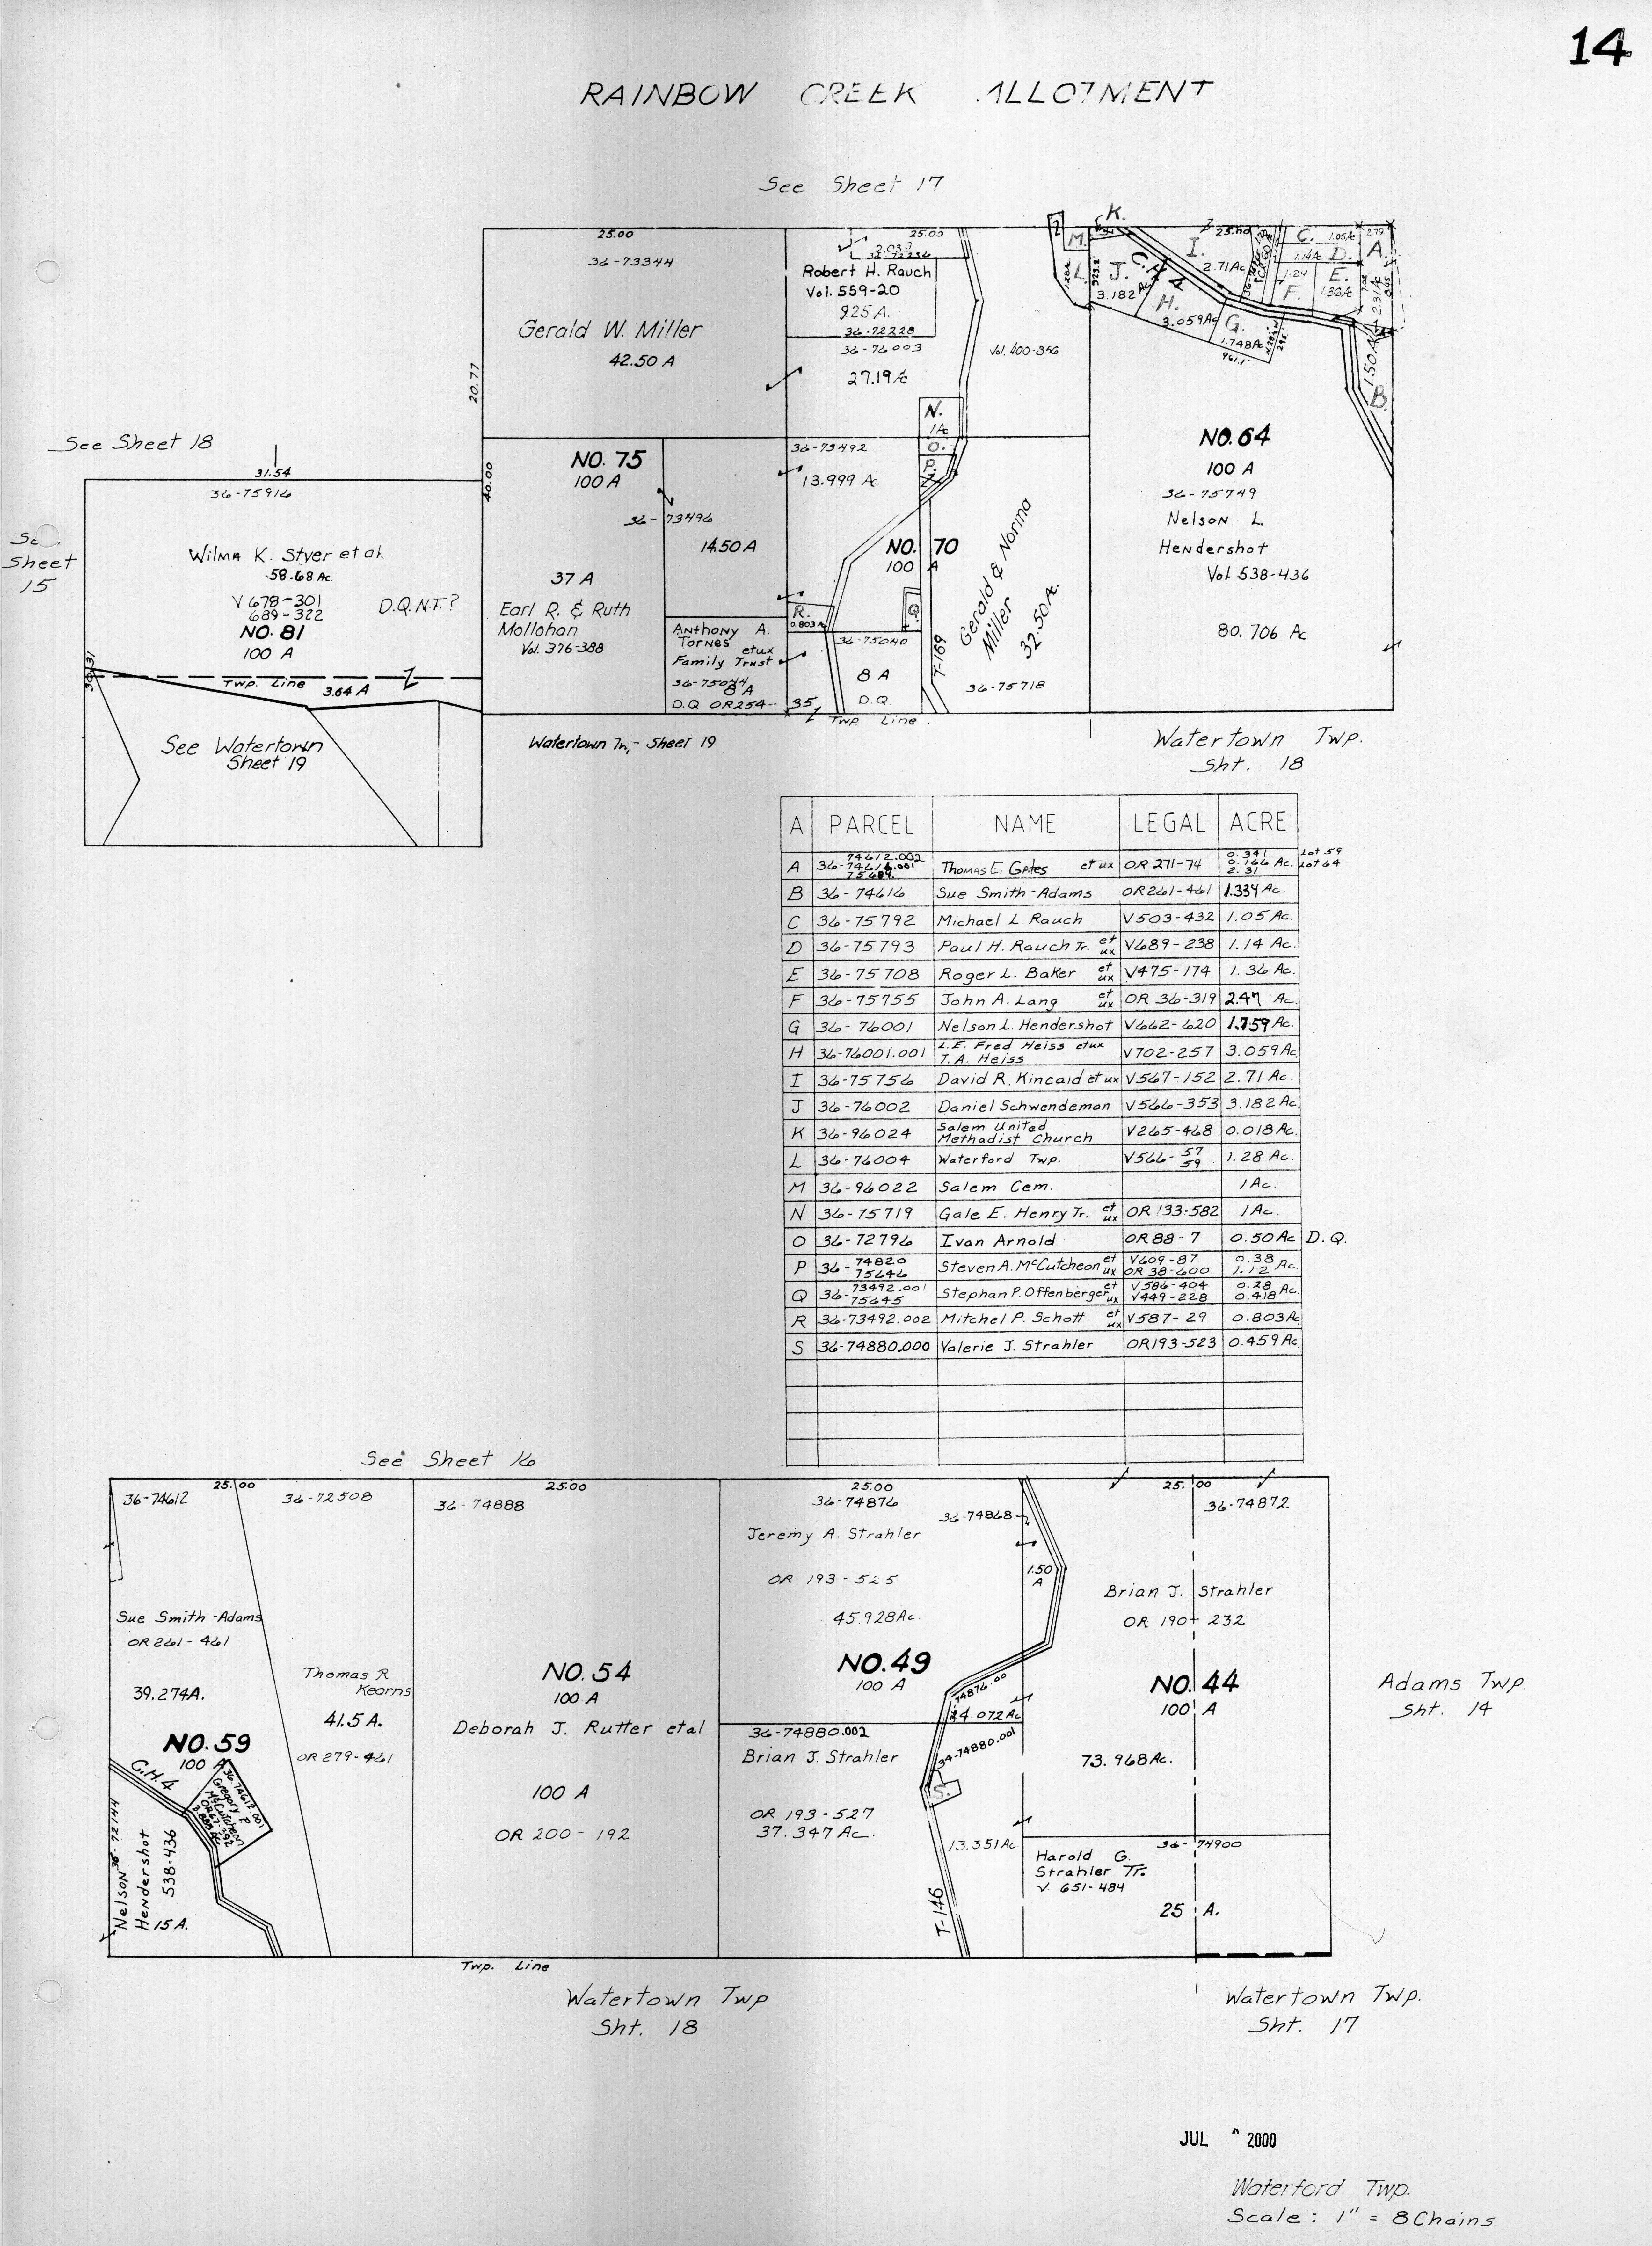 14
RAINBOW CREEK ALLOTMENT
See Sheet 17
25.00
36-73344
Gerald W. Miller
42.50 A
20.77
25.00
2.03
36-72236
Robert H. Rauch
Vol. 559-20
9.25 A.
36-72228
36-76003
27.19 Ac
Vol. 400-356
K.
M.
L.
J.
3.182 Ac
C.H. 4
H.
3.059 Ac
I.
2.71 Ac
25.00
G.
1.748 Ac
961.1'
C. 1.05 Ac
1.14 Ac D.
1.24
F.
E.
1.36 Ac
2.79
A.
2.31 Ac
1.50 A
B.
N.
1 Ac
O.
P.
NO. 64
100 A
36-75749
Nelson L.
Hendershot
Vol. 538-436
80.706 Ac
See Sheet 18
31.54
36-75916
See
Sheet
15
Wilma K. Styer et al.
58.68 Ac.
V 678-301
689-322
D.Q.N.T.?
NO. 81
100 A
Twp. Line
3.64 A
See Watertown
Sheet 19
40.00
NO. 75
100 A
36-73496
14.50 A
37 A
Earl R. & Ruth
Mollohan
Vol. 376-388
Anthony A.
Tornes
etux
Family Trust
36-75044
8 A
D.Q. OR254-
35
36-73492
13.999 Ac.
NO. 70
100 A
R.
0.803 Ac
Q.
36-75040
8 A
D.Q.
T-169
Gerald & Norma
Miller
32.50 Ac.
36-75718
Twp. Line
Watertown Tw,- Sheet 19
Watertown Twp.
Sht. 18
A PARCEL NAME LEGAL ACRE
A 36-74612.002 74616.001 75689. Thomas E. Gates et ux OR 271-74 0.341 0.166 2.31 Ac. Lot 59 Lot 64
B 36-74616 Sue Smith-Adams OR261-461 1.334 Ac.
C 36-75792 Michael L. Rauch V503-432 1.05 Ac.
D 36-75793 Paul H. Rauch Tr. et ux V689-238 1.14 Ac.
E 36-75708 Roger L. Baker et ux V475-174 1.36 Ac.
F 36-75755 John A. Lang et ux OR 36-319 2.47 Ac.
G 36-76001 Nelson L. Hendershot V662-620 1.759 Ac.
H 36-76001.001 L.E. Fred Heiss etux T.A. Heiss V702-257 3.059 Ac.
I 36-75756 David R. Kincaid et ux V567-152 2.71 Ac.
J 36-76002 Daniel Schwendeman V566-353 3.182 Ac.
K 36-96024 Salem United Methadist Church V265-468 0.018 Ac.
L 36-76004 Waterford Twp. V566-57 59 1.28 Ac.
M 36-96022 Salem Cem. 1 Ac.
N 36-75719 Gale E. Henry Tr. et ux OR 133-582 1 Ac.
O 36-72796 Ivan Arnold OR 88-7 0.50 Ac D.Q.
P 36-74820 75646 Steven A. McCutcheon et ux V609-87 OR 38-600 0.38 1.12 Ac.
Q 36-73492.001 75645 Stephan P. Offenberger et ux V586-404 V449-228 0.28 0.418 Ac.
R 36-73492.002 Mitchel P. Schott et ux V587-29 0.803 Ac
S 36-74880.000 Valerie J. Strahler OR193-523 0.459 Ac.
See Sheet 16
36-74612
25.00
36-72508
Sue Smith-Adams
OR 261-461
39.274 A.
NO. 59
100 A
C.H. 4
36-74612.001
Gregory P.
McCutcheon
Nelson 36-72144
Hendershot
538-436
15 A.
Thomas R
Kearns
41.5 A.
OR 279-461
25.00
36-74888
NO. 54
100 A
Deborah J. Rutter etal
100 A
OR 200-192
25.00
36-74876
36-74868
Jeremy A. Strahler
OR 193-525
45.928 Ac.
1.50
A
NO. 49
100 A
74876.00
24.072 Ac
36-74880.002
Brian J. Strahler
34-74880.001
S.
OR 193-527
37.347 Ac.
13.351 Ac.
T-146
25.00
36-74872
Brian J. Strahler
OR 190-232
NO. 44
100 A
73.968 Ac.
36-74900
Harold G.
Strahler Tr.
V. 651-484
25 A.
Adams Twp.
Sht. 14
Twp. Line
Watertown Twp
Sht. 18
Watertown Twp.
Sht. 17
JUL 2000
Waterford Twp.
Scale: 1" = 8 Chains